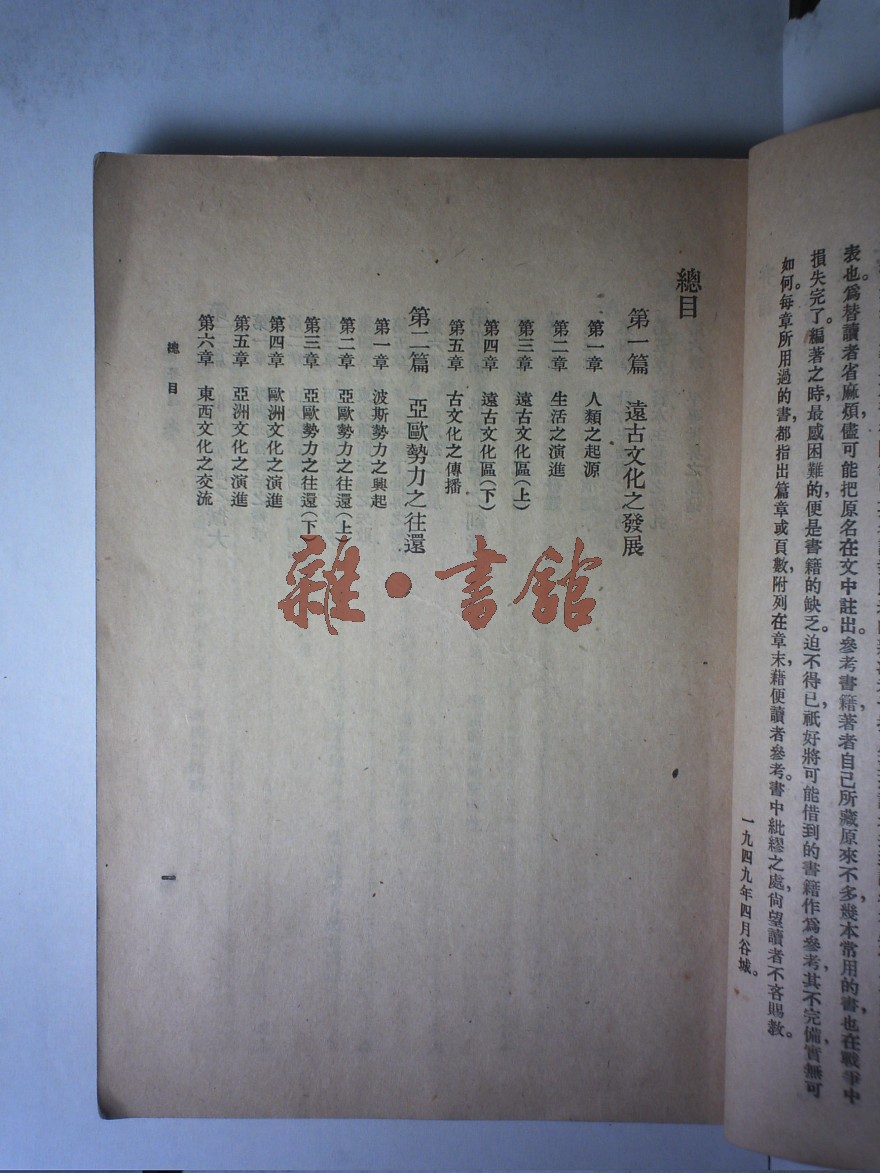 表也。爲替讀者省麻煩，儘可能把原名在文中註出。參考書籍，著者自己所藏原來不多，幾本常用的書，也在戰爭中
損失完了。編著之時，最感困難的，便是書籍的缺乏。迫不得已，祇好將可能借到的書籍作爲參考，其不完備，實無可
如何。每章所用過的書，都指出篇章或頁數，附列在章末，藉便讀者參考。書中紕繆之處，尙望讀者不吝賜教。
一九四九年四月谷城。
總目
第一篇 遠古文化之發展
第一章 人類之起源
第二章 生活之演進
第三章 遠古文化區(上)
第四章 遠古文化區(下)
第五章 古文化之傳播
第二篇 亞歐勢力之往還
第一章 波斯勢力之興起
第二章 亞歐勢力之往還(上)
第三章 亞歐勢力之往還(下)
第四章 歐洲文化之演進
第五章 亞洲文化之演進
第六章 東西文化之交流
總目
一
雜·書館